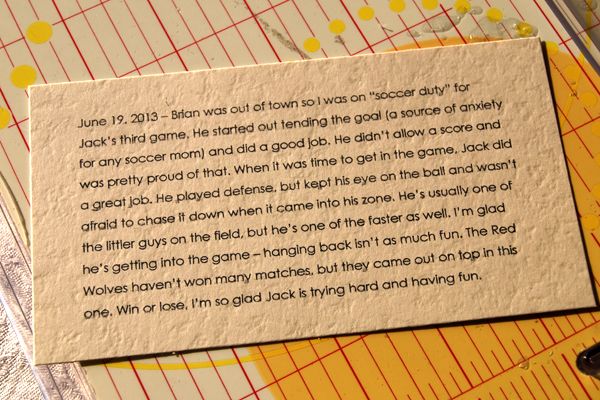 June 19, 2013 – Brian was out of town so I was on “soccer duty” for
Jack’s third game. He started out tending the goal (a source of anxiety
for any soccer mom) and did a good job. He didn’t allow a score and
was pretty proud of that. When it was time to get in the game, Jack did
a great job. He played defense, but kept his eye on the ball and wasn’t
afraid to chase it down when it came into his zone. He’s usually one of
the littler guys on the field, but he’s one of the faster as well. I’m glad
he’s getting into the game – hanging back isn’t as much fun. The Red
Wolves haven’t won many matches, but they came out on top in this
one. Win or lose, I’m so glad Jack is trying hard and having fun.